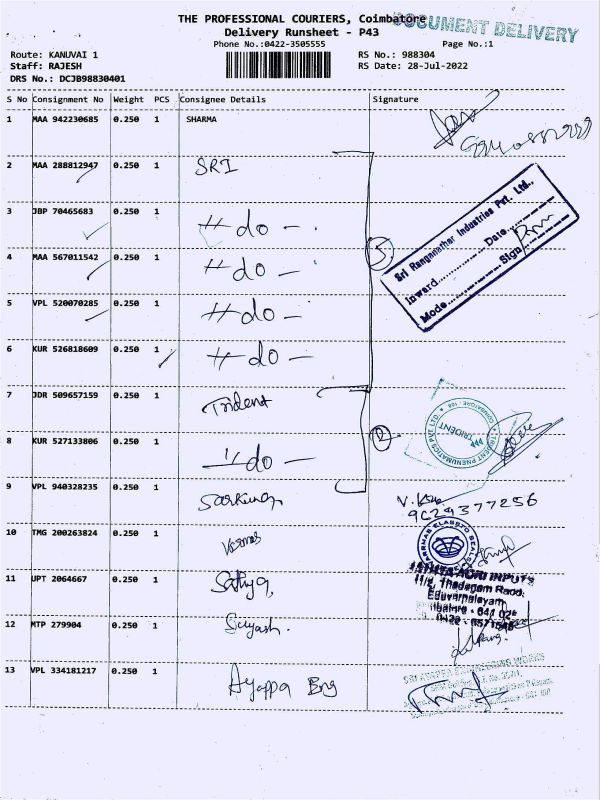 THE PROFESSIONAL COURIERS, Coimbatore
DOCUMENT DELIVERY
Delivery Runsheet - P43
Phone No.:0422-3505555
Page No.:1
Route: KANUVAI 1
Staff: RAJESH
DRS No.: DCJB98830401
RS No.: 988304
RS Date: 28-Jul-2022
S No Consignment No Weight PCS Consignee Details Signature
1 MAA 942230685 0.250 1 SHARMA
2 MAA 288812947 0.250 1 SRI
3 JBP 70465683 0.250 1 -11- do -.
4 MAA 567011542 0.250 1 -11- do -
5 VPL 520070285 0.250 1 -11- do -
6 KUR 526818609 0.250 1 -11- do -
5
Sri Ranganathar Industries Pvt. Ltd.,
Inward............ Date............
Mode............ Sign
7 JDR 509657159 0.250 1 Trident
8 KUR 527133806 0.250 1 -11- do -
2
TRIDENT PNEUMATICS PVT. LTD.
COIMBATORE
TRIDENT
9 VPL 940328235 0.250 1
9629377256
10 TMG 200263824 0.250 1
11 UPT 2064667 0.250 1 Sathya,
AGRI INPUTS
Thadagam Road,
Eduvarpalayam
12 MTP 279904 0.250 1 Suyash.
13 VPL 334181217 0.250 1 Ayappa Eng